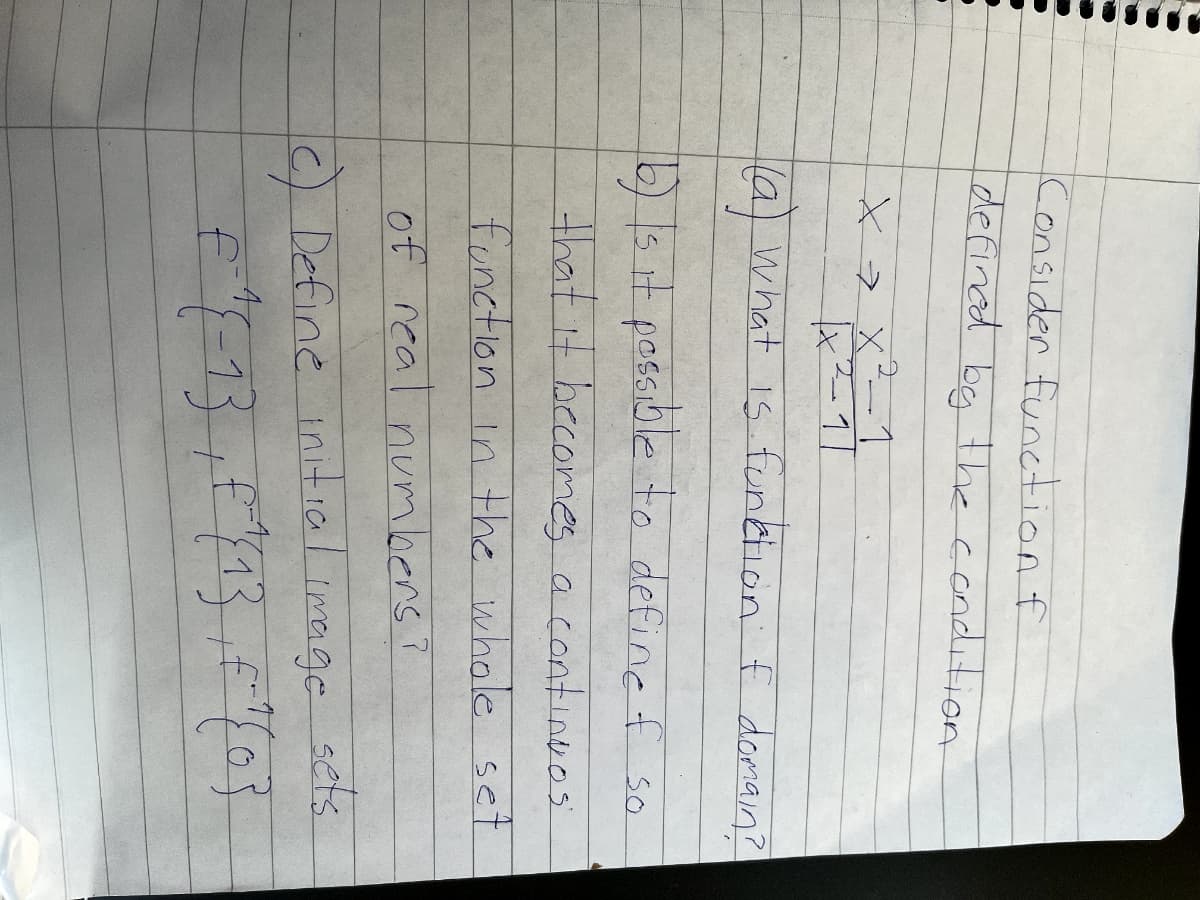 Consider function f
defined by the condition
x → x²-1
|x²-1|
(a) What is function f domain?
b) Is it possible to define f so
that it becomes a continuos
function in the whole set
of real numbers?
c) Define initial image sets
f⁻¹{-1}, f⁻¹{1}, f⁻¹{0}